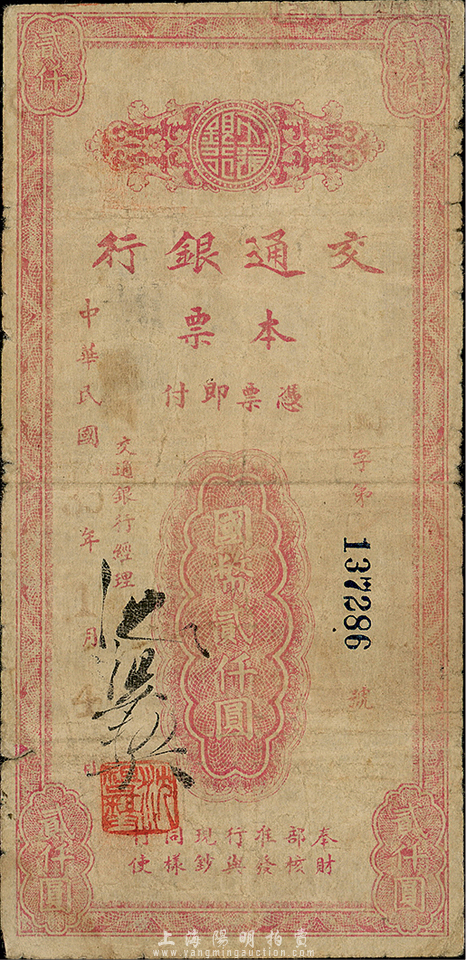 貳仟
貳仟
交通銀行
本票
憑票即付
字第
137286
號
國幣貳仟圓
交通銀行經理
中華民國
年
月
4
貳仟圓
貳仟圓
奉財部核准發行與現鈔同樣行使
上海陽明拍賣
www.yangmingauction.com